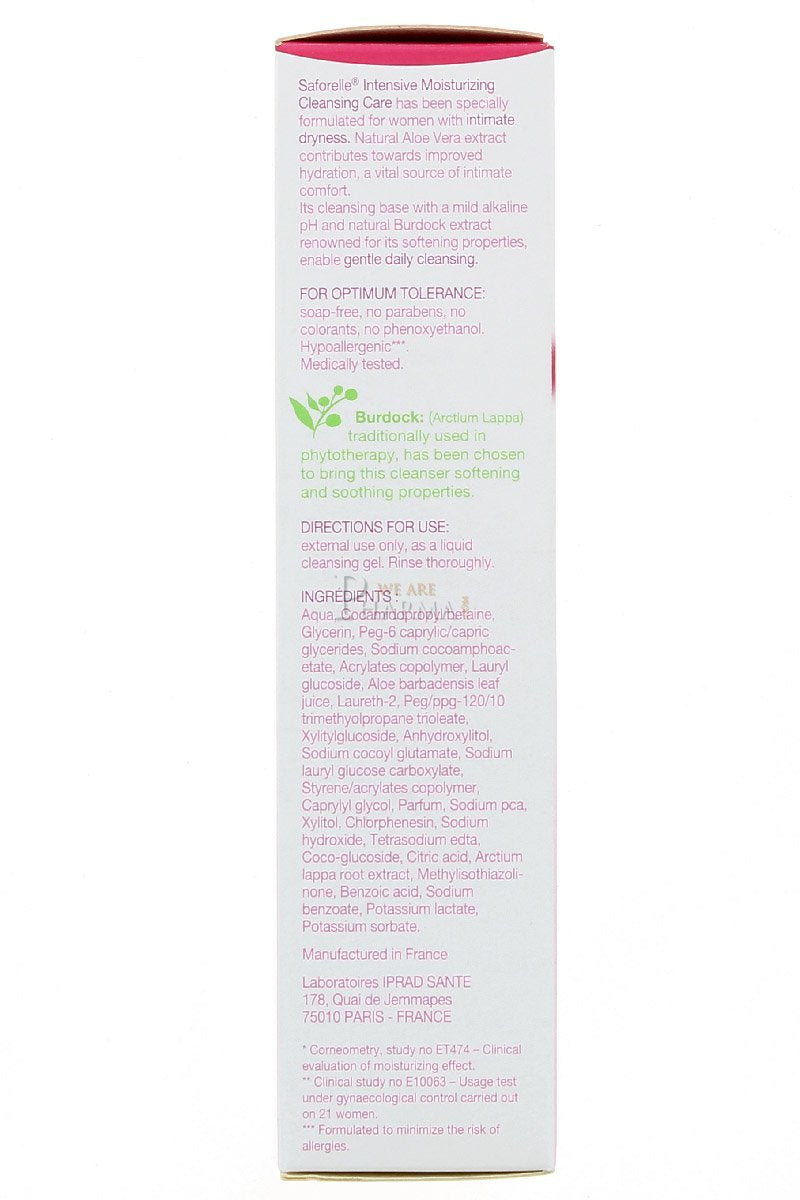 Saforelle® Intensive Moisturizing
Cleansing Care has been specially
formulated for women with intimate
dryness. Natural Aloe Vera extract
contributes towards improved
hydration, a vital source of intimate
comfort.
Its cleansing base with a mild alkaline
pH and natural Burdock extract
renowned for its softening properties,
enable gentle daily cleansing.
FOR OPTIMUM TOLERANCE:
soap-free, no parabens, no
colorants, no phenoxyethanol.
Hypoallergenic***.
Medically tested.
Burdock: (Arctium Lappa)
traditionally used in
phytotherapy, has been chosen
to bring this cleanser softening
and soothing properties.
DIRECTIONS FOR USE:
external use only, as a liquid
cleansing gel. Rinse thoroughly.
WE ARE
PHARMA
INGRÉDIENTS :
Aqua, Cocamidopropyl betaine,
Glycerin, Peg-6 caprylic/capric
glycerides, Sodium cocoamphoac-
etate, Acrylates copolymer, Lauryl
glucoside, Aloe barbadensis leaf
juice, Laureth-2, Peg/ppg-120/10
trimethyolpropane trioleate,
Xylitylglucoside, Anhydroxylitol,
Sodium cocoyl glutamate, Sodium
lauryl glucose carboxylate,
Styrene/acrylates copolymer,
Caprylyl glycol, Parfum, Sodium pca,
Xylitol, Chlorphenesin, Sodium
hydroxide, Tetrasodium edta,
Coco-glucoside, Citric acid, Arctium
lappa root extract, Methylisothiazoli-
none, Benzoic acid, Sodium
benzoate, Potassium lactate,
Potassium sorbate.
Manufactured in France
Laboratoires IPRAD SANTE
178, Quai de Jemmapes
75010 PARIS - FRANCE
* Corneometry, study no ET474 – Clinical
evaluation of moisturizing effect.
** Clinical study no E10063 – Usage test
under gynaecological control carried out
on 21 women.
*** Formulated to minimize the risk of
allergies.